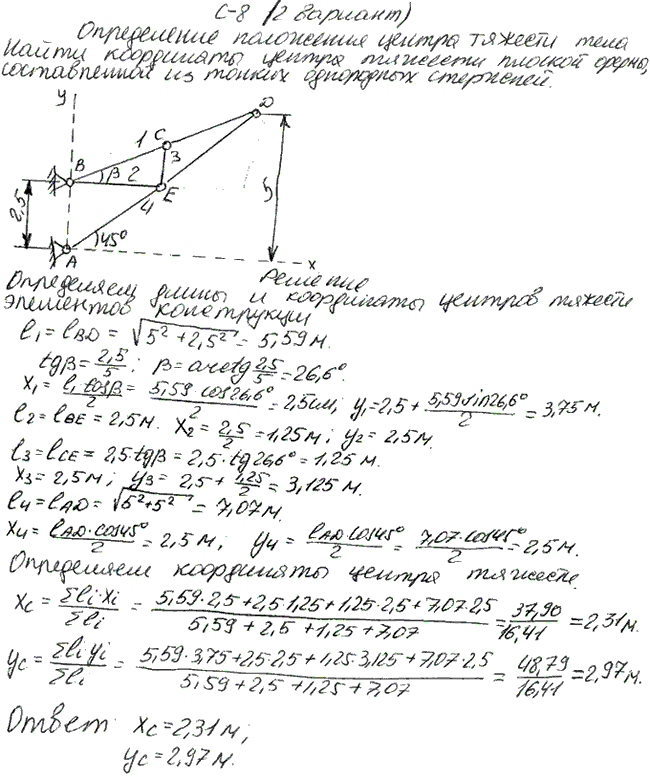 С-8 (2 вариант)
Определение положения центра тяжести тела
Найти координаты центра тяжести плоской фермы,
составленной из тонких однородных стержней.
y
D
1 C
3
B
β 2
E
4
2,5
5
45°
A
x
Решение
Определяем длины и координаты центров тяжести
элементов конструкции
l₁ = l_BD = √(5² + 2,5²) = 5,59 м.
tgβ = 2,5/5; β = arctg 2,5/5 = 26,6°.
x₁ = l₁·cosβ/2 = 5,59·cos26,6°/2 = 2,5 м; y₁ = 2,5 + 5,59·sin26,6°/2 = 3,75 м.
l₂ = l_BE = 2,5 м. x₂ = 2,5/2 = 1,25 м; y₂ = 2,5 м.
l₃ = l_CE = 2,5·tgβ = 2,5·tg26,6° = 1,25 м.
x₃ = 2,5 м; y₃ = 2,5 + 1,25/2 = 3,125 м.
l₄ = l_AD = √(5²+5²) = 7,07 м.
x₄ = l_AD·cos45°/2 = 2,5 м; y₄ = l_AD·cos45°/2 = 7,07·cos45°/2 = 2,5 м.
Определяем координаты центра тяжести.
x_C = Σlᵢ·xᵢ/Σlᵢ = (5,59·2,5+2,5·1,25+1,25·2,5+7,07·2,5)/(5,59+2,5+1,25+7,07) = 37,90/16,41 = 2,31 м.
y_C = Σlᵢyᵢ/Σlᵢ = (5,59·3,75+2,5·2,5+1,25·3,125+7,07·2,5)/(5,59+2,5+1,25+7,07) = 48,79/16,41 = 2,97 м.
Ответ: x_C = 2,31 м;
y_C = 2,97 м.